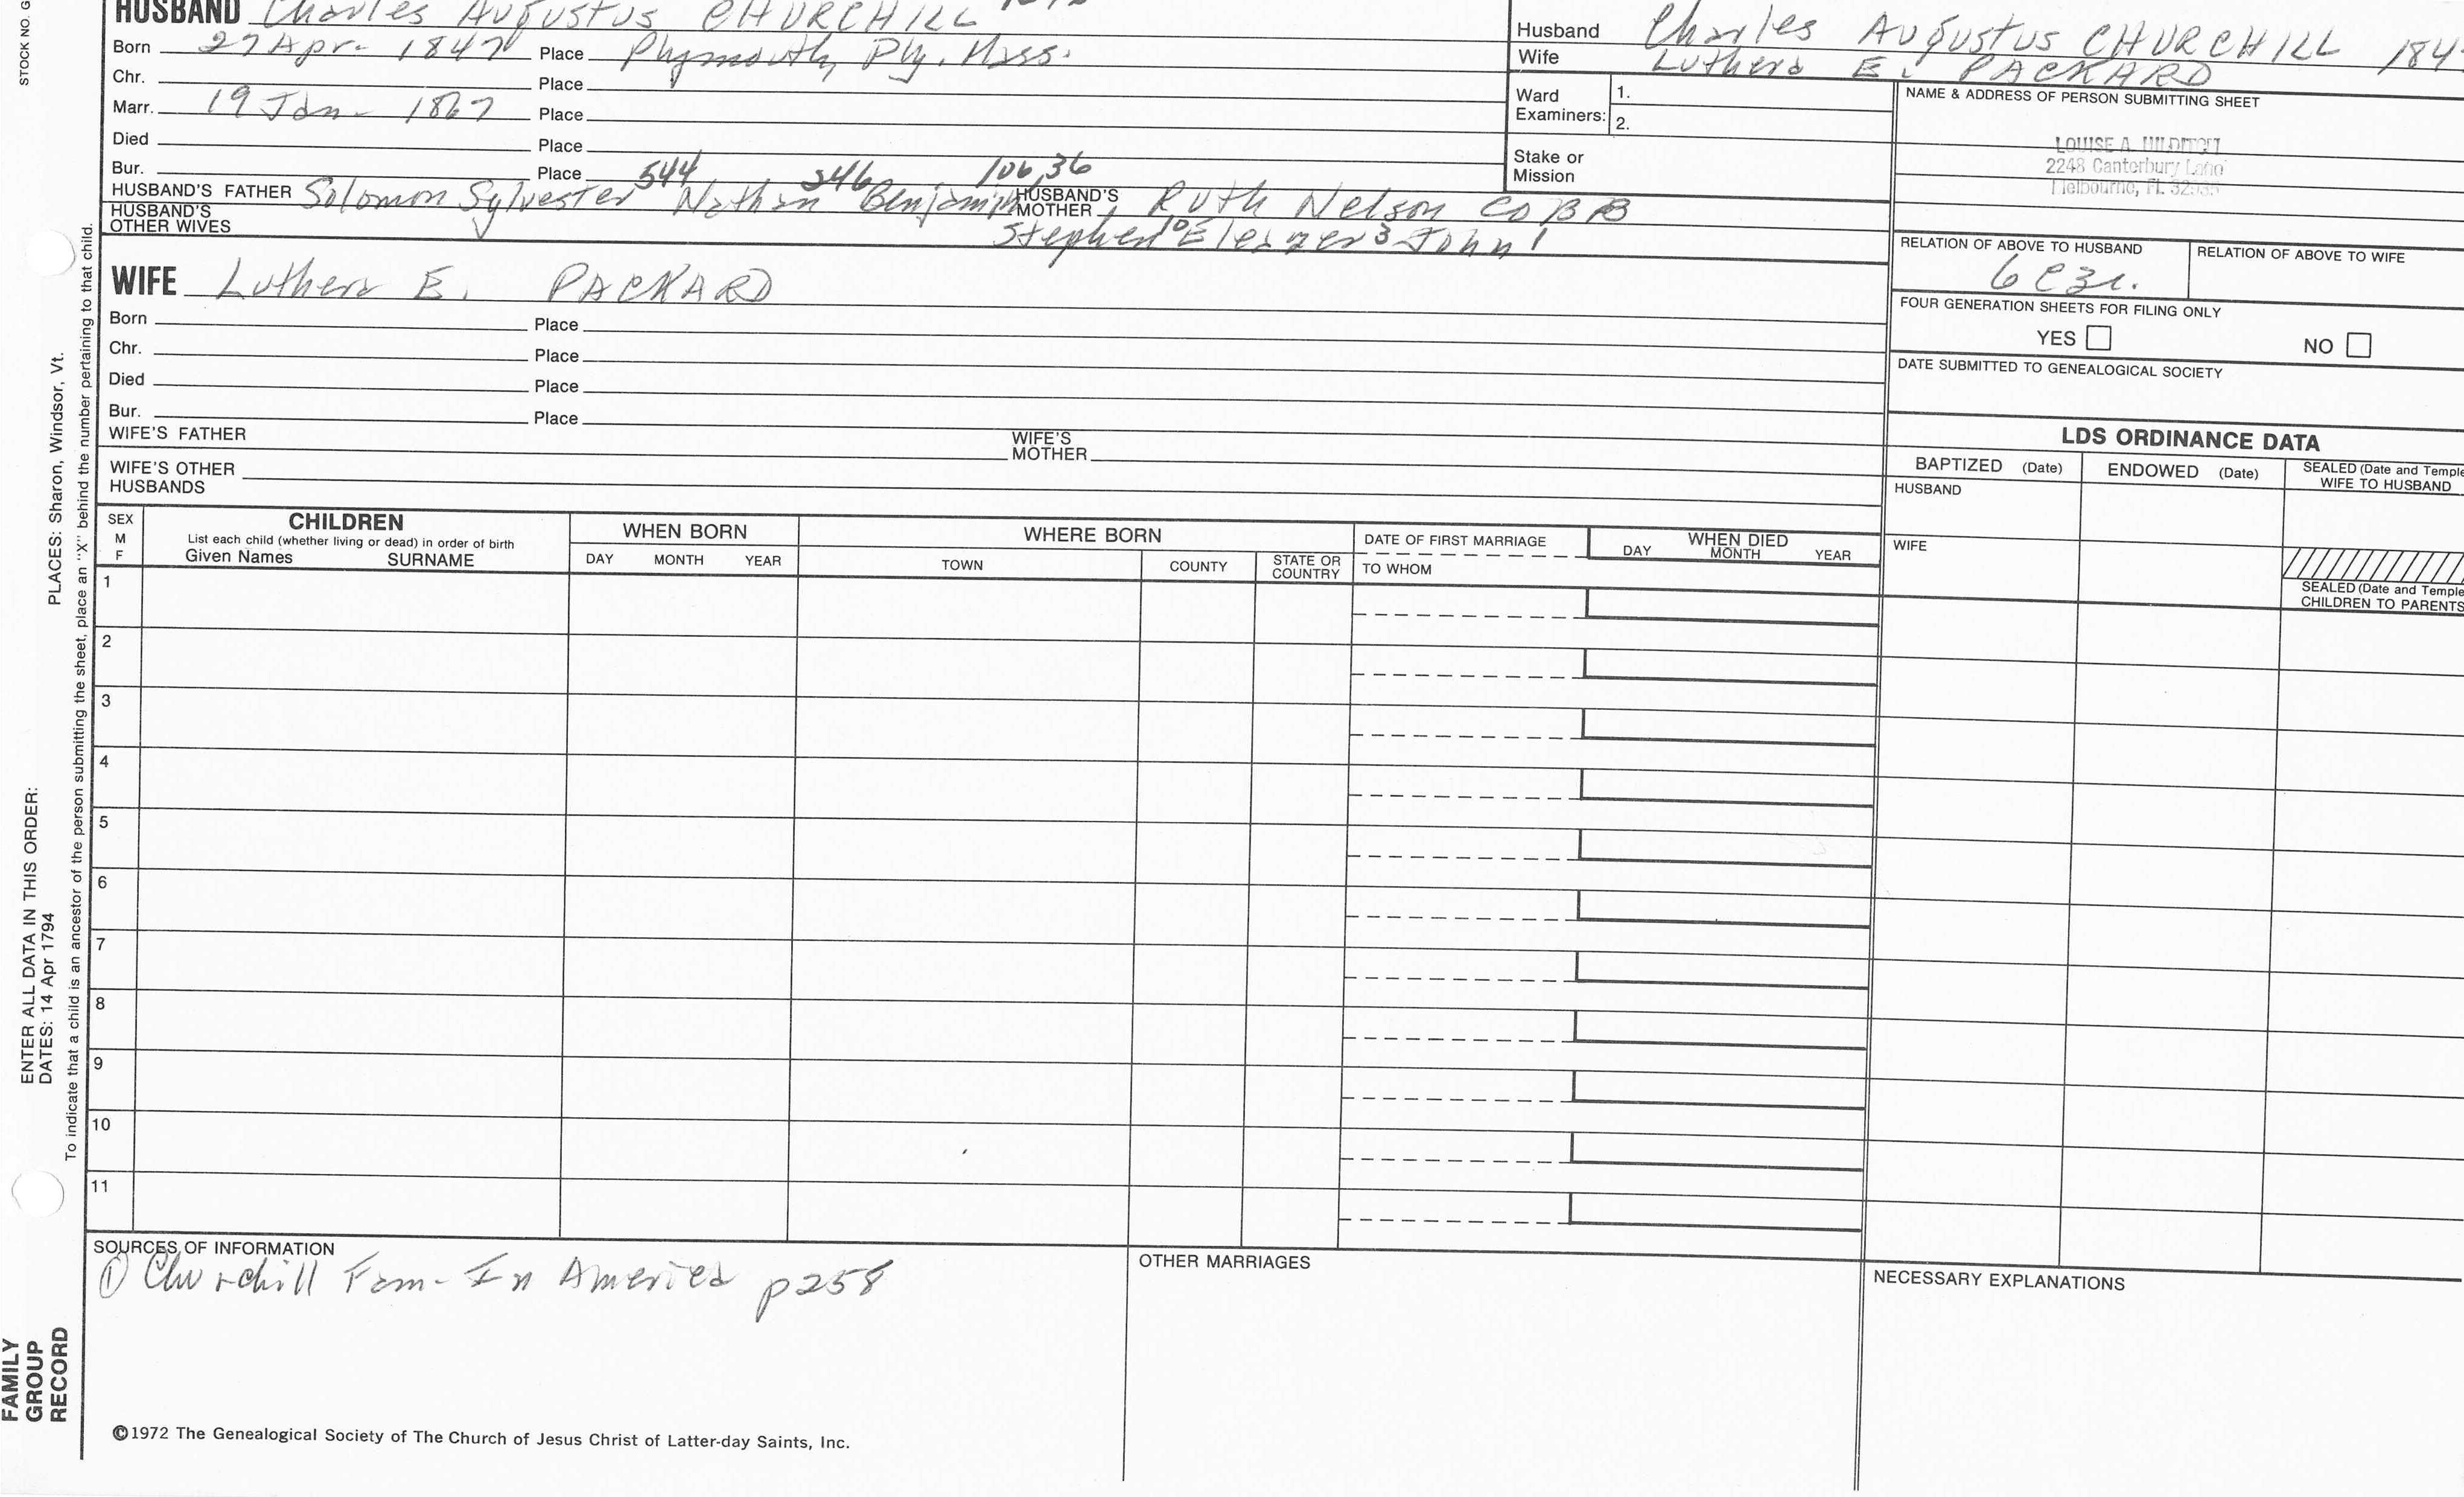 HUSBAND Charles Augustus CHURCHILL
Born 27 Apr- 1847 Place Plymouth, Ply. Mass.
Chr. Place
Marr. 19 Jan- 1867 Place
Died Place
Bur. Place
544 246 106,36
HUSBAND'S FATHER Solomon Sylvester Nathan Benjamin HUSBAND'S MOTHER Ruth Nelson COBB
HUSBAND'S OTHER WIVES Stephen 10 Eleazer 3 John 1
WIFE Luthera E. PACKARD
Born Place
Chr. Place
Died Place
Bur. Place
WIFE'S FATHER WIFE'S MOTHER
WIFE'S OTHER HUSBANDS
Husband Charles Augustus CHURCHILL 184
Wife Luthera E. PACKARD
Ward Examiners: 1.
2.
Stake or Mission
NAME & ADDRESS OF PERSON SUBMITTING SHEET
LOUISE A.
2248 Canterbury Lane
Melbourne, Fl.
RELATION OF ABOVE TO HUSBAND RELATION OF ABOVE TO WIFE
6C3r.
FOUR GENERATION SHEETS FOR FILING ONLY
YES NO
DATE SUBMITTED TO GENEALOGICAL SOCIETY
LDS ORDINANCE DATA
BAPTIZED (Date) ENDOWED (Date) SEALED (Date and Temple
WIFE TO HUSBAND
HUSBAND
WIFE
SEALED (Date and Temple
CHILDREN TO PARENTS
SEX
M
F
CHILDREN
List each child (whether living or dead) in order of birth
Given Names SURNAME
WHEN BORN
DAY MONTH YEAR
WHERE BORN
TOWN COUNTY STATE OR COUNTRY
DATE OF FIRST MARRIAGE
TO WHOM
WHEN DIED
DAY MONTH YEAR
1
2
3
4
5
6
7
8
9
10
11
SOURCES OF INFORMATION
① Churchill Fam- In America p258
OTHER MARRIAGES
NECESSARY EXPLANATIONS
©1972 The Genealogical Society of The Church of Jesus Christ of Latter-day Saints, Inc.
STOCK NO. G
PLACES: Sharon, Windsor, Vt.
To indicate that a child is an ancestor of the person submitting the sheet, place an "X" behind the number pertaining to that child.
ENTER ALL DATA IN THIS ORDER:
DATES: 14 Apr 1794
FAMILY
GROUP
RECORD